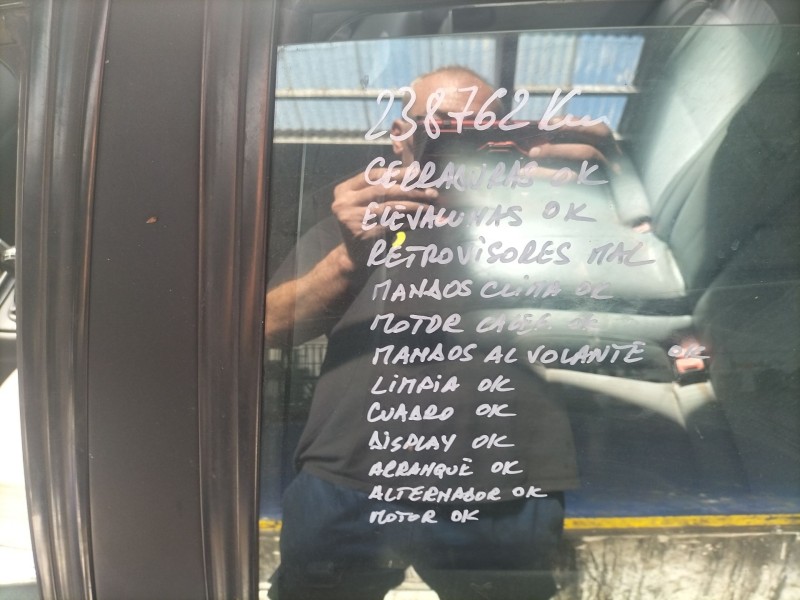 238762 Km
CERRADURAS OK
ELEVALUNAS OK
RETROVISORES MAL
MANDOS CLIMA OK
MOTOR CALEF. OK
MANDOS AL VOLANTE OK
LIMPIA OK
CUADRO OK
DISPLAY OK
ARRANQUE OK
ALTERNADOR OK
MOTOR OK